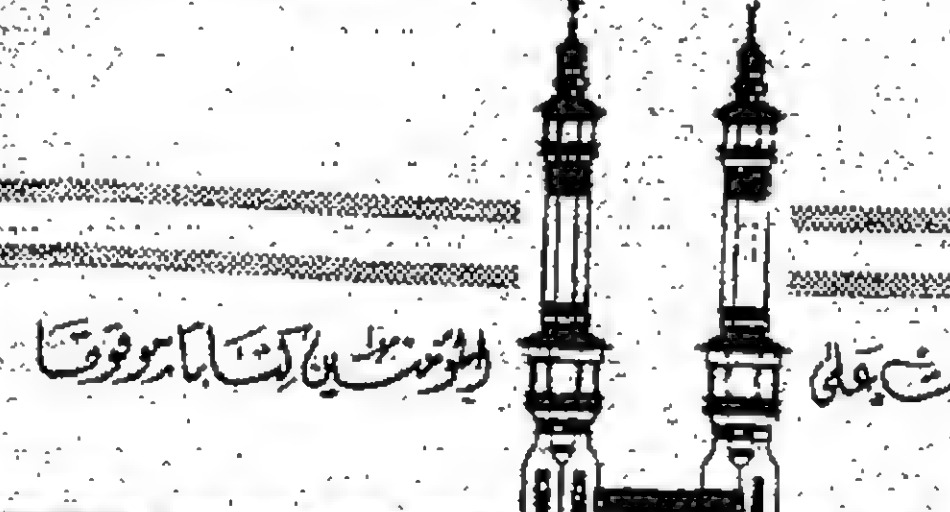 ت على المؤمنين كتابا موقوتا